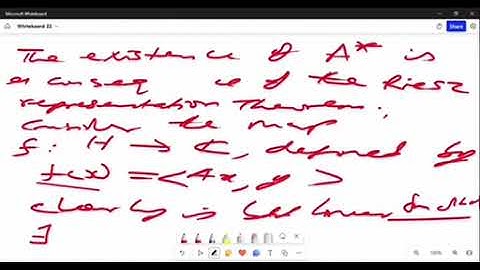 Microsoft Whiteboard
Whiteboard 22
Share
The existence of A* is
a conseq ce of the Riesz
representation Theorem,
Consider the map
f: H → ℂ, defined by
f(x) = <Ax, y>
clearly is linear
∃
100%